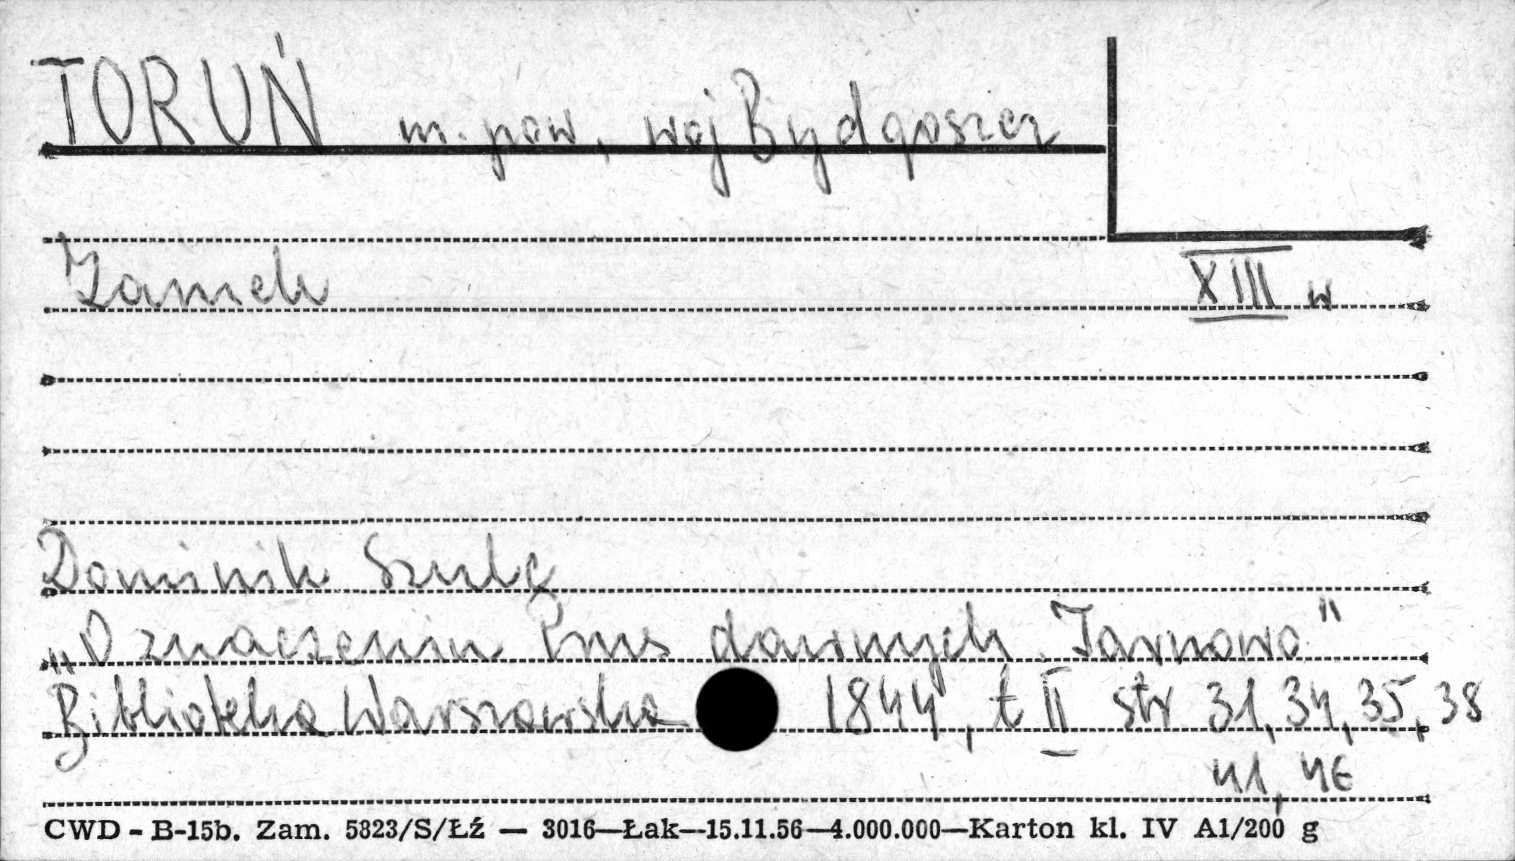 TORUŃ m. pow, woj Bydgoszcz
Zamek
XIII w
Dominik Szulc
„O znaczeniu Prus dawnych. Tarnowo"
Biblioteka Warszawska 1844, t II str 31, 34, 35, 38
41, 46
CWD - B-15b. Zam. 5823/S/Łź — 3016—Łak—15.11.56—4.000.000—Karton kl. IV A1/200 g